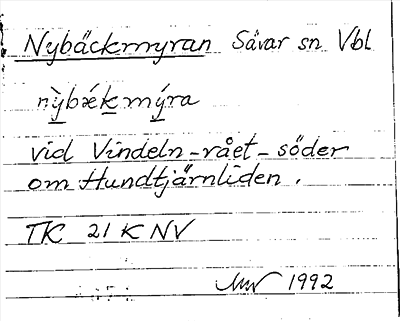 Nybäckmyran Sävar sn Vbl
nỳbǽkmýra
vid Vindeln-rået-söder
om Hundtjärnliden.
TK 21 K NV
1992